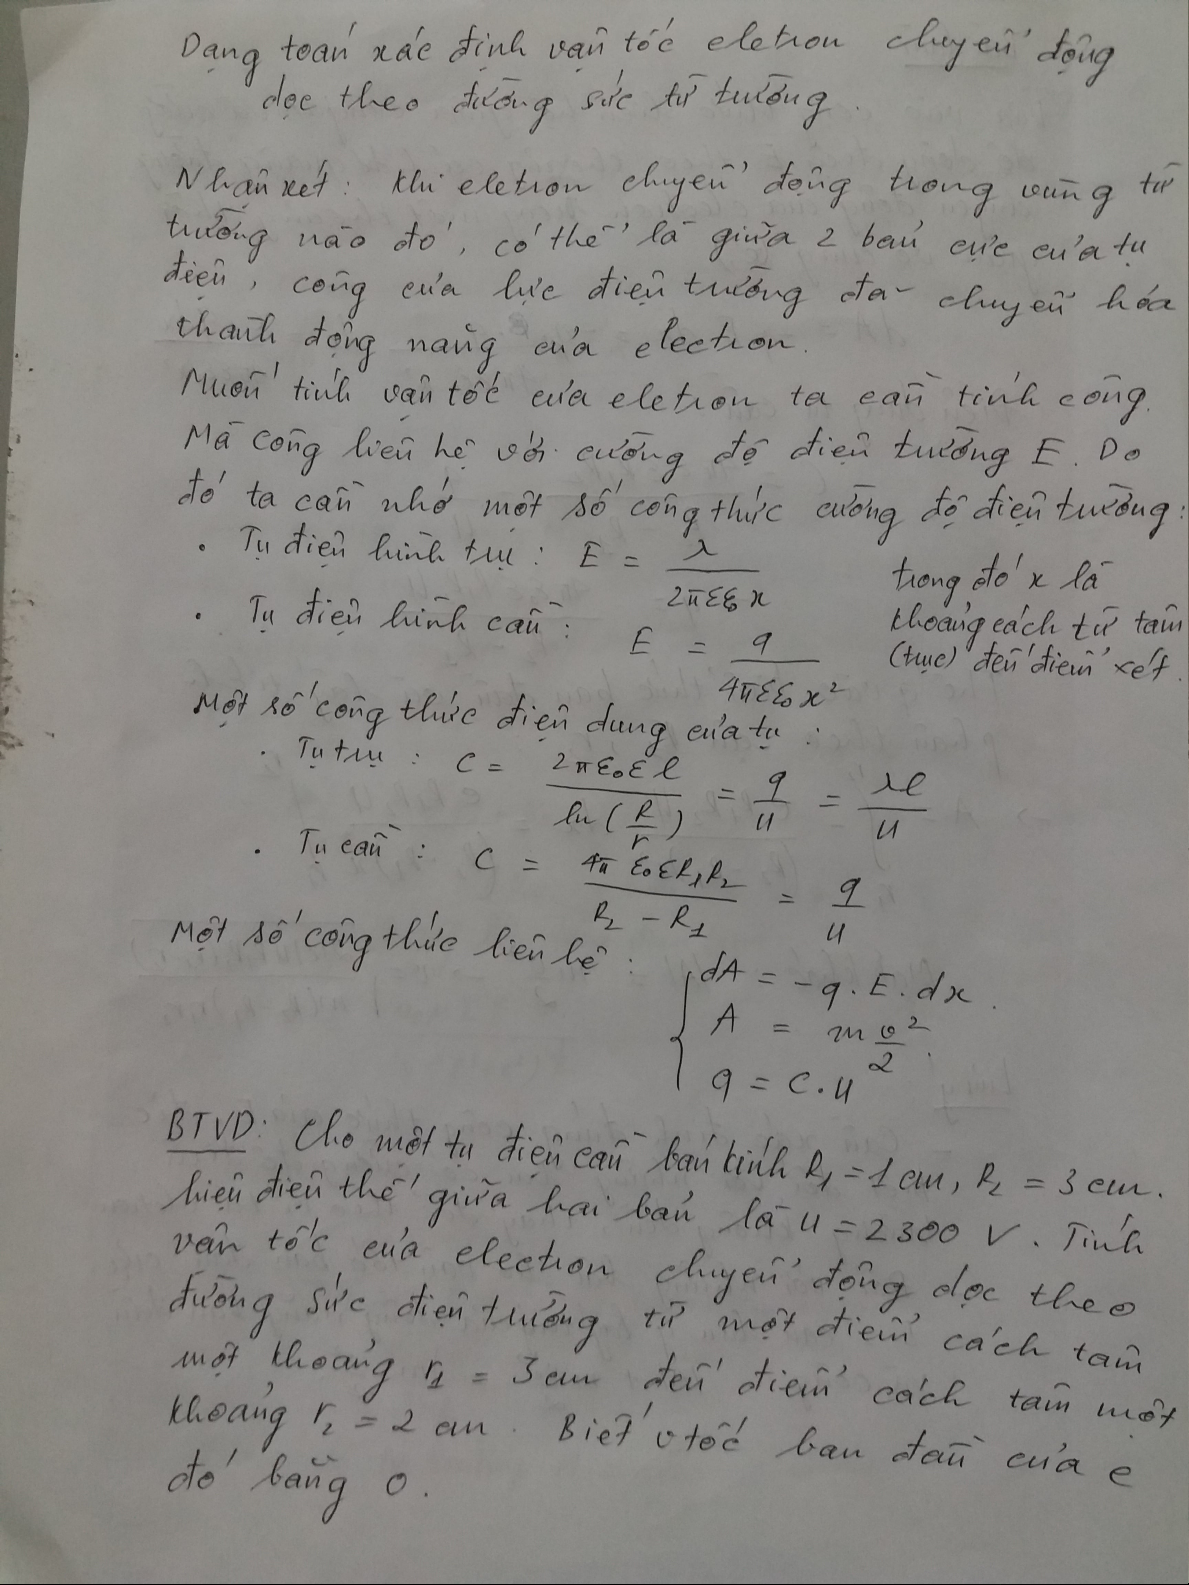 Dạng toán xác định vận tốc eletron chuyển động
dọc theo đường sức từ trường.
Nhận xét: Khi eletron chuyển động trong vùng từ
trường nào đó, có thể là giữa 2 bản cực của tụ
điện, công của lực điện trường đã chuyển hóa
thành động năng của electron.
Muốn tính vận tốc của eletron ta cần tính công.
Mà công liên hệ với cường độ điện trường E. Do
đó ta cần nhớ một số công thức cường độ điện trường:
• Tụ điện hình trụ: E = λ / 2πεε₀x
• Tụ điện hình cầu: E = q / 4πεε₀x²
trong đó x là
khoảng cách từ tâm
(trục) đến điểm xét.
Một số công thức điện dung của tụ:
• Tụ trụ: C = 2πε₀εl / ln(R/r) = q/U = λl/U
• Tụ cầu: C = 4πε₀εR₁R₂ / R₂ - R₁ = q/U
Một số công thức liên hệ:
dA = -q.E.dx.
A = m v²/2.
q = C.U
BTVD: Cho một tụ điện cầu bán kính R₁ = 1 cm, R₂ = 3 cm.
hiệu điện thế giữa hai bản là U = 2300 V. Tính
vận tốc của electron chuyển động dọc theo
đường sức điện trường từ một điểm cách tâm
một khoảng r₁ = 3 cm đến điểm cách tâm một
khoảng r₂ = 2 cm. Biết v tốc ban đầu của e
đó bằng 0.